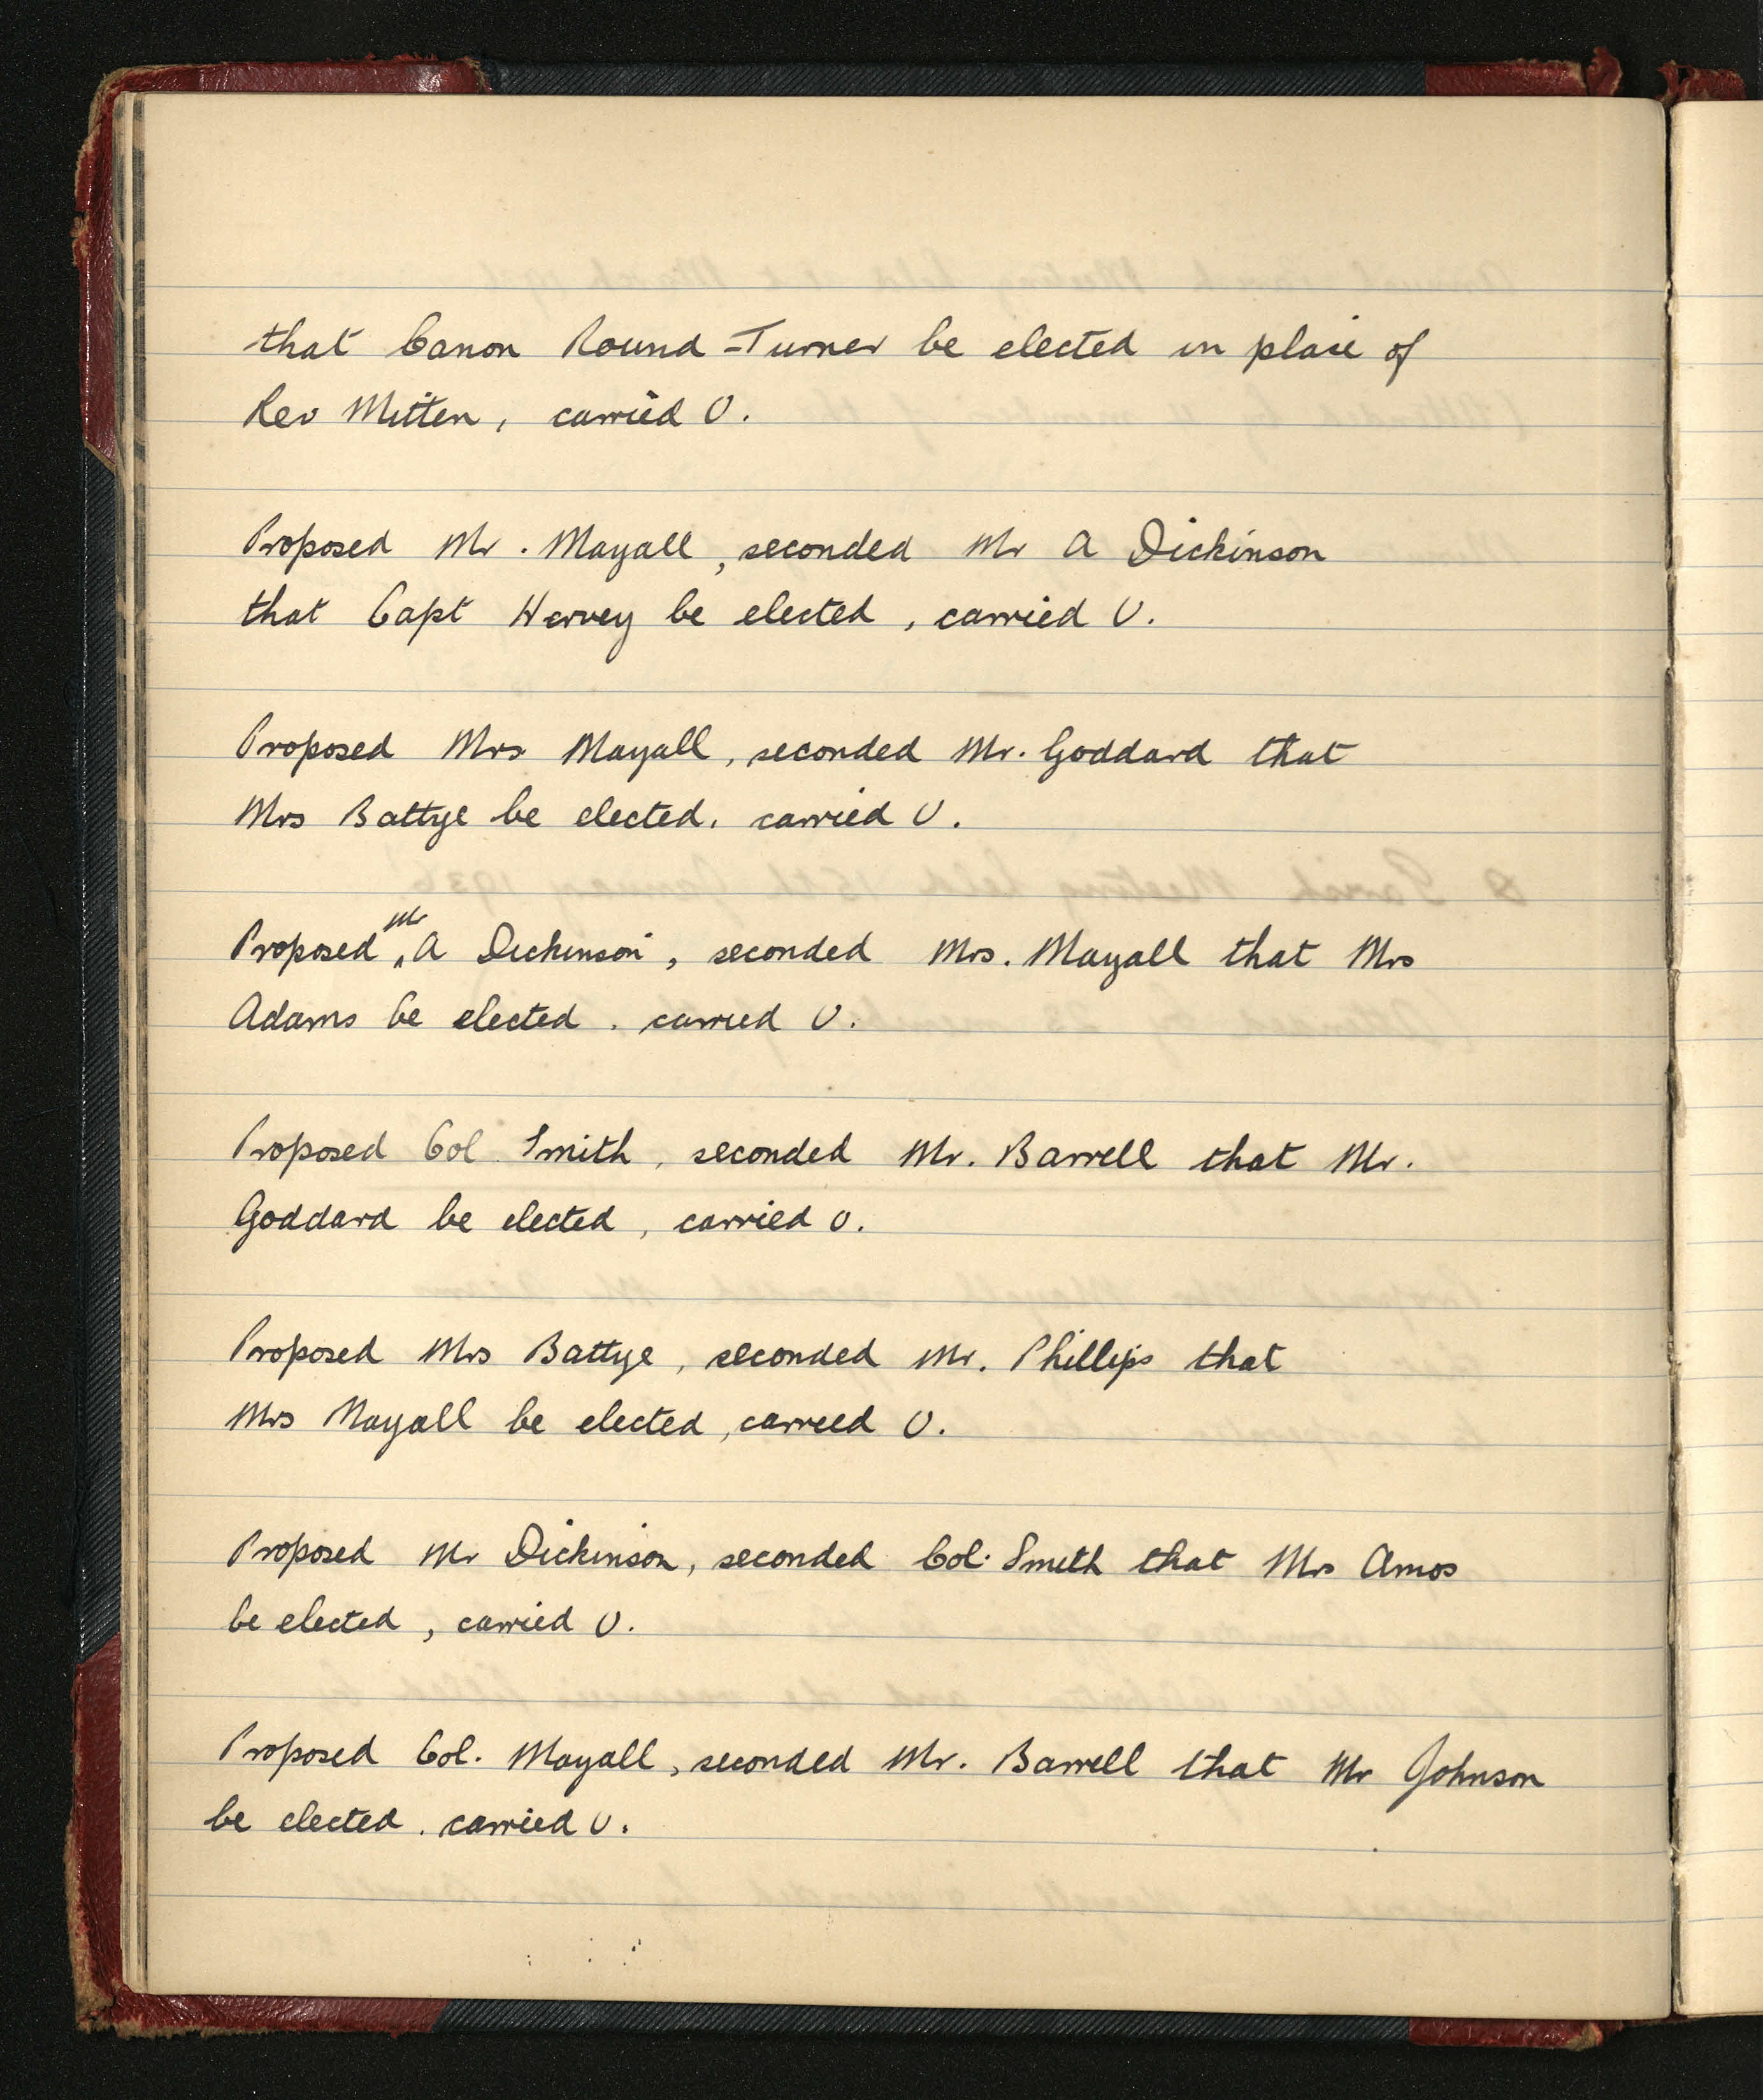 that Canon Round-Turner be elected in place of
Rev Mitten, carried U.
Proposed Mr. Mayall, seconded Mr A Dickinson
that Capt Hervey be elected, carried U.
Proposed Mrs Mayall, seconded Mr. Goddard that
Mrs Battye be elected. carried U.
Proposed Mr A Dickinson, seconded Mrs. Mayall that Mrs
Adams be elected. carried U.
Proposed Col Smith, seconded Mr. Barrell that Mr.
Goddard be elected, carried U.
Proposed Mrs Battye, seconded Mr. Phillips that
Mrs Mayall be elected, carried U.
Proposed Mr Dickinson, seconded Col. Smith that Mrs Amos
be elected, carried U.
Proposed Col. Mayall, seconded Mr. Barrell that Mr Johnson
be elected. carried U.